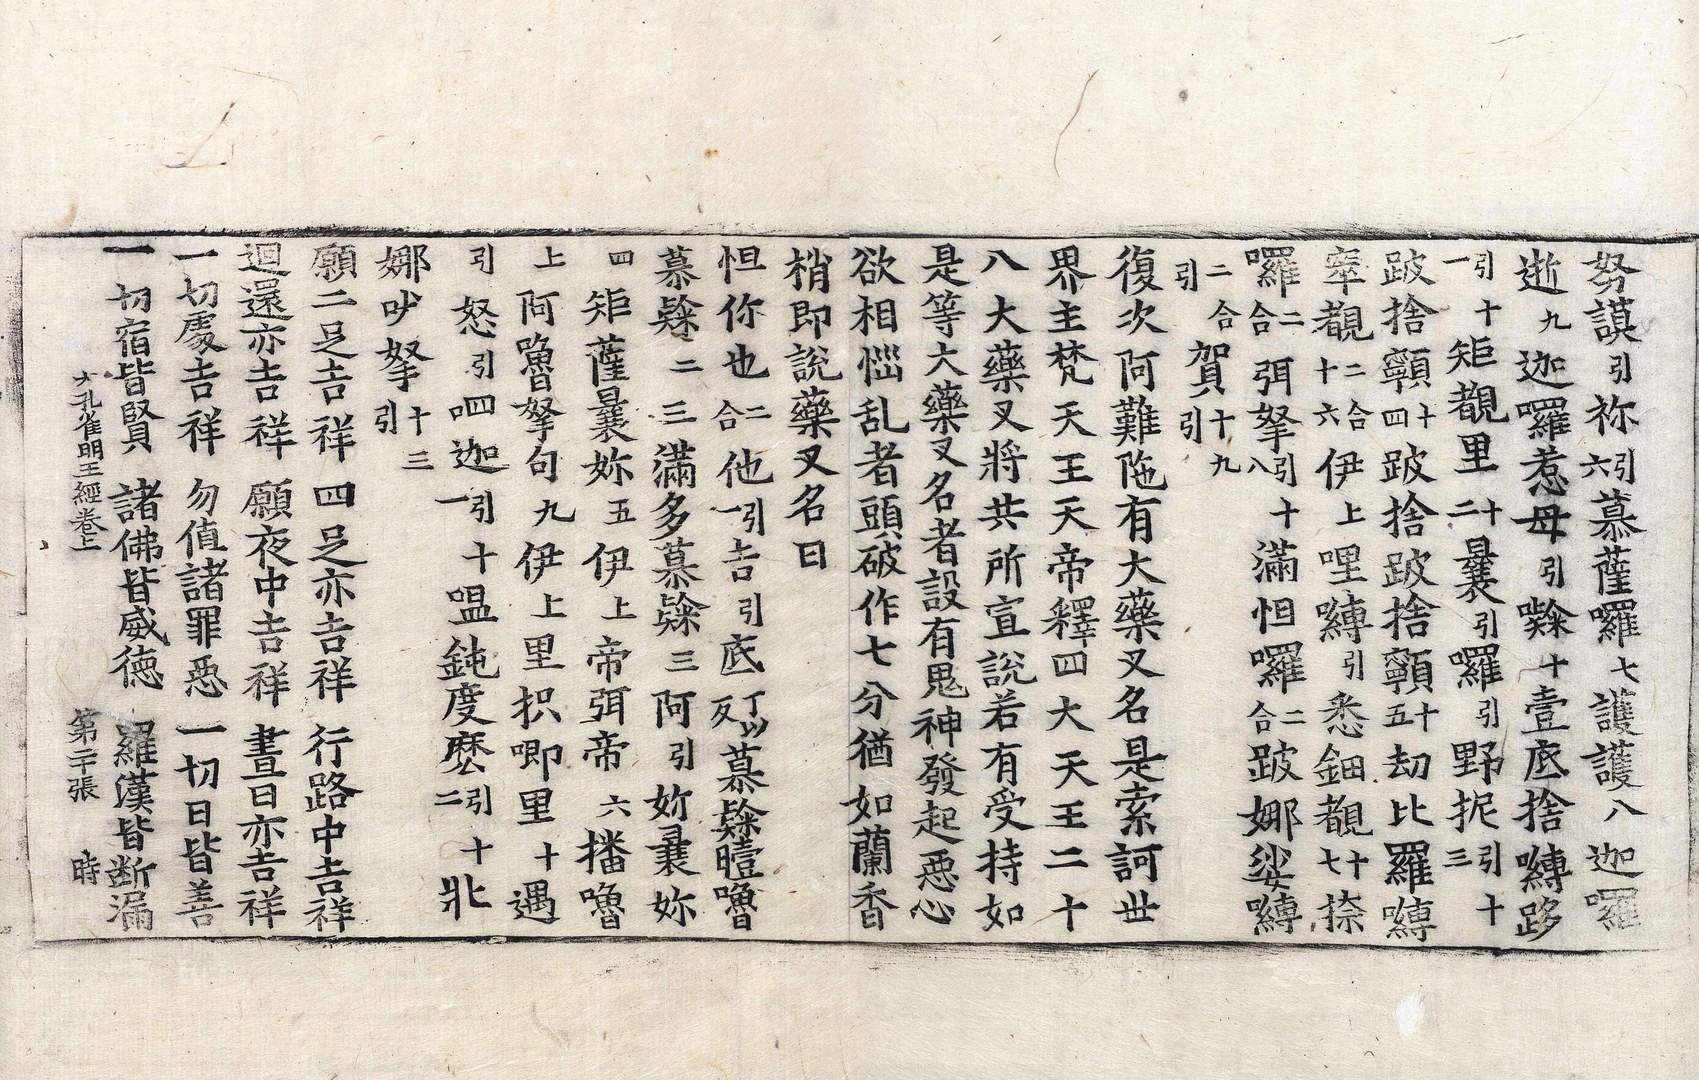 努謨引祢引六慕薩囉七護護八迦囉
逝九迦囉惹母引嚟十壹底捨嚩跢
引十一矩覩里十二曩引囉引野抳引十三
跛捨顐十四跛捨跛捨顐十五劫比羅嚩
窣覩二合十六伊上哩嚩引悉鈿覩十七捺
囉二合弭拏引十八滿怛囉二合跛娜娑嚩
二合引賀引十九
復次阿難陁有大藥叉名是索訶世
界主梵天王天帝釋四大天王二十
八大藥叉將共所宣說若有受持如
是等大藥叉名者設有鬼神發起惡心
欲相惱乱者頭破作七分猶如蘭香
梢即說藥叉名曰
怛你也二合他引一吉引底丁以反慕㘑曀嚕
慕㘑二三滿多慕㘑三阿引妳曩妳
四矩薩曩妳五伊上帝弭帝六播嚕
上阿嚕拏句九伊上里枳唧里十遇
引怒引四迦引十一嗢鈍度麽引十二牝
娜吵拏引十三
願二足吉祥 四足亦吉祥 行路中吉祥
迴還亦吉祥 願夜中吉祥 晝日亦吉祥
一切處吉祥 勿值諸罪惡 一切日皆善
一切宿皆賢 諸佛皆威德 羅漢皆断漏
大孔雀明王經卷上 第二十張 時